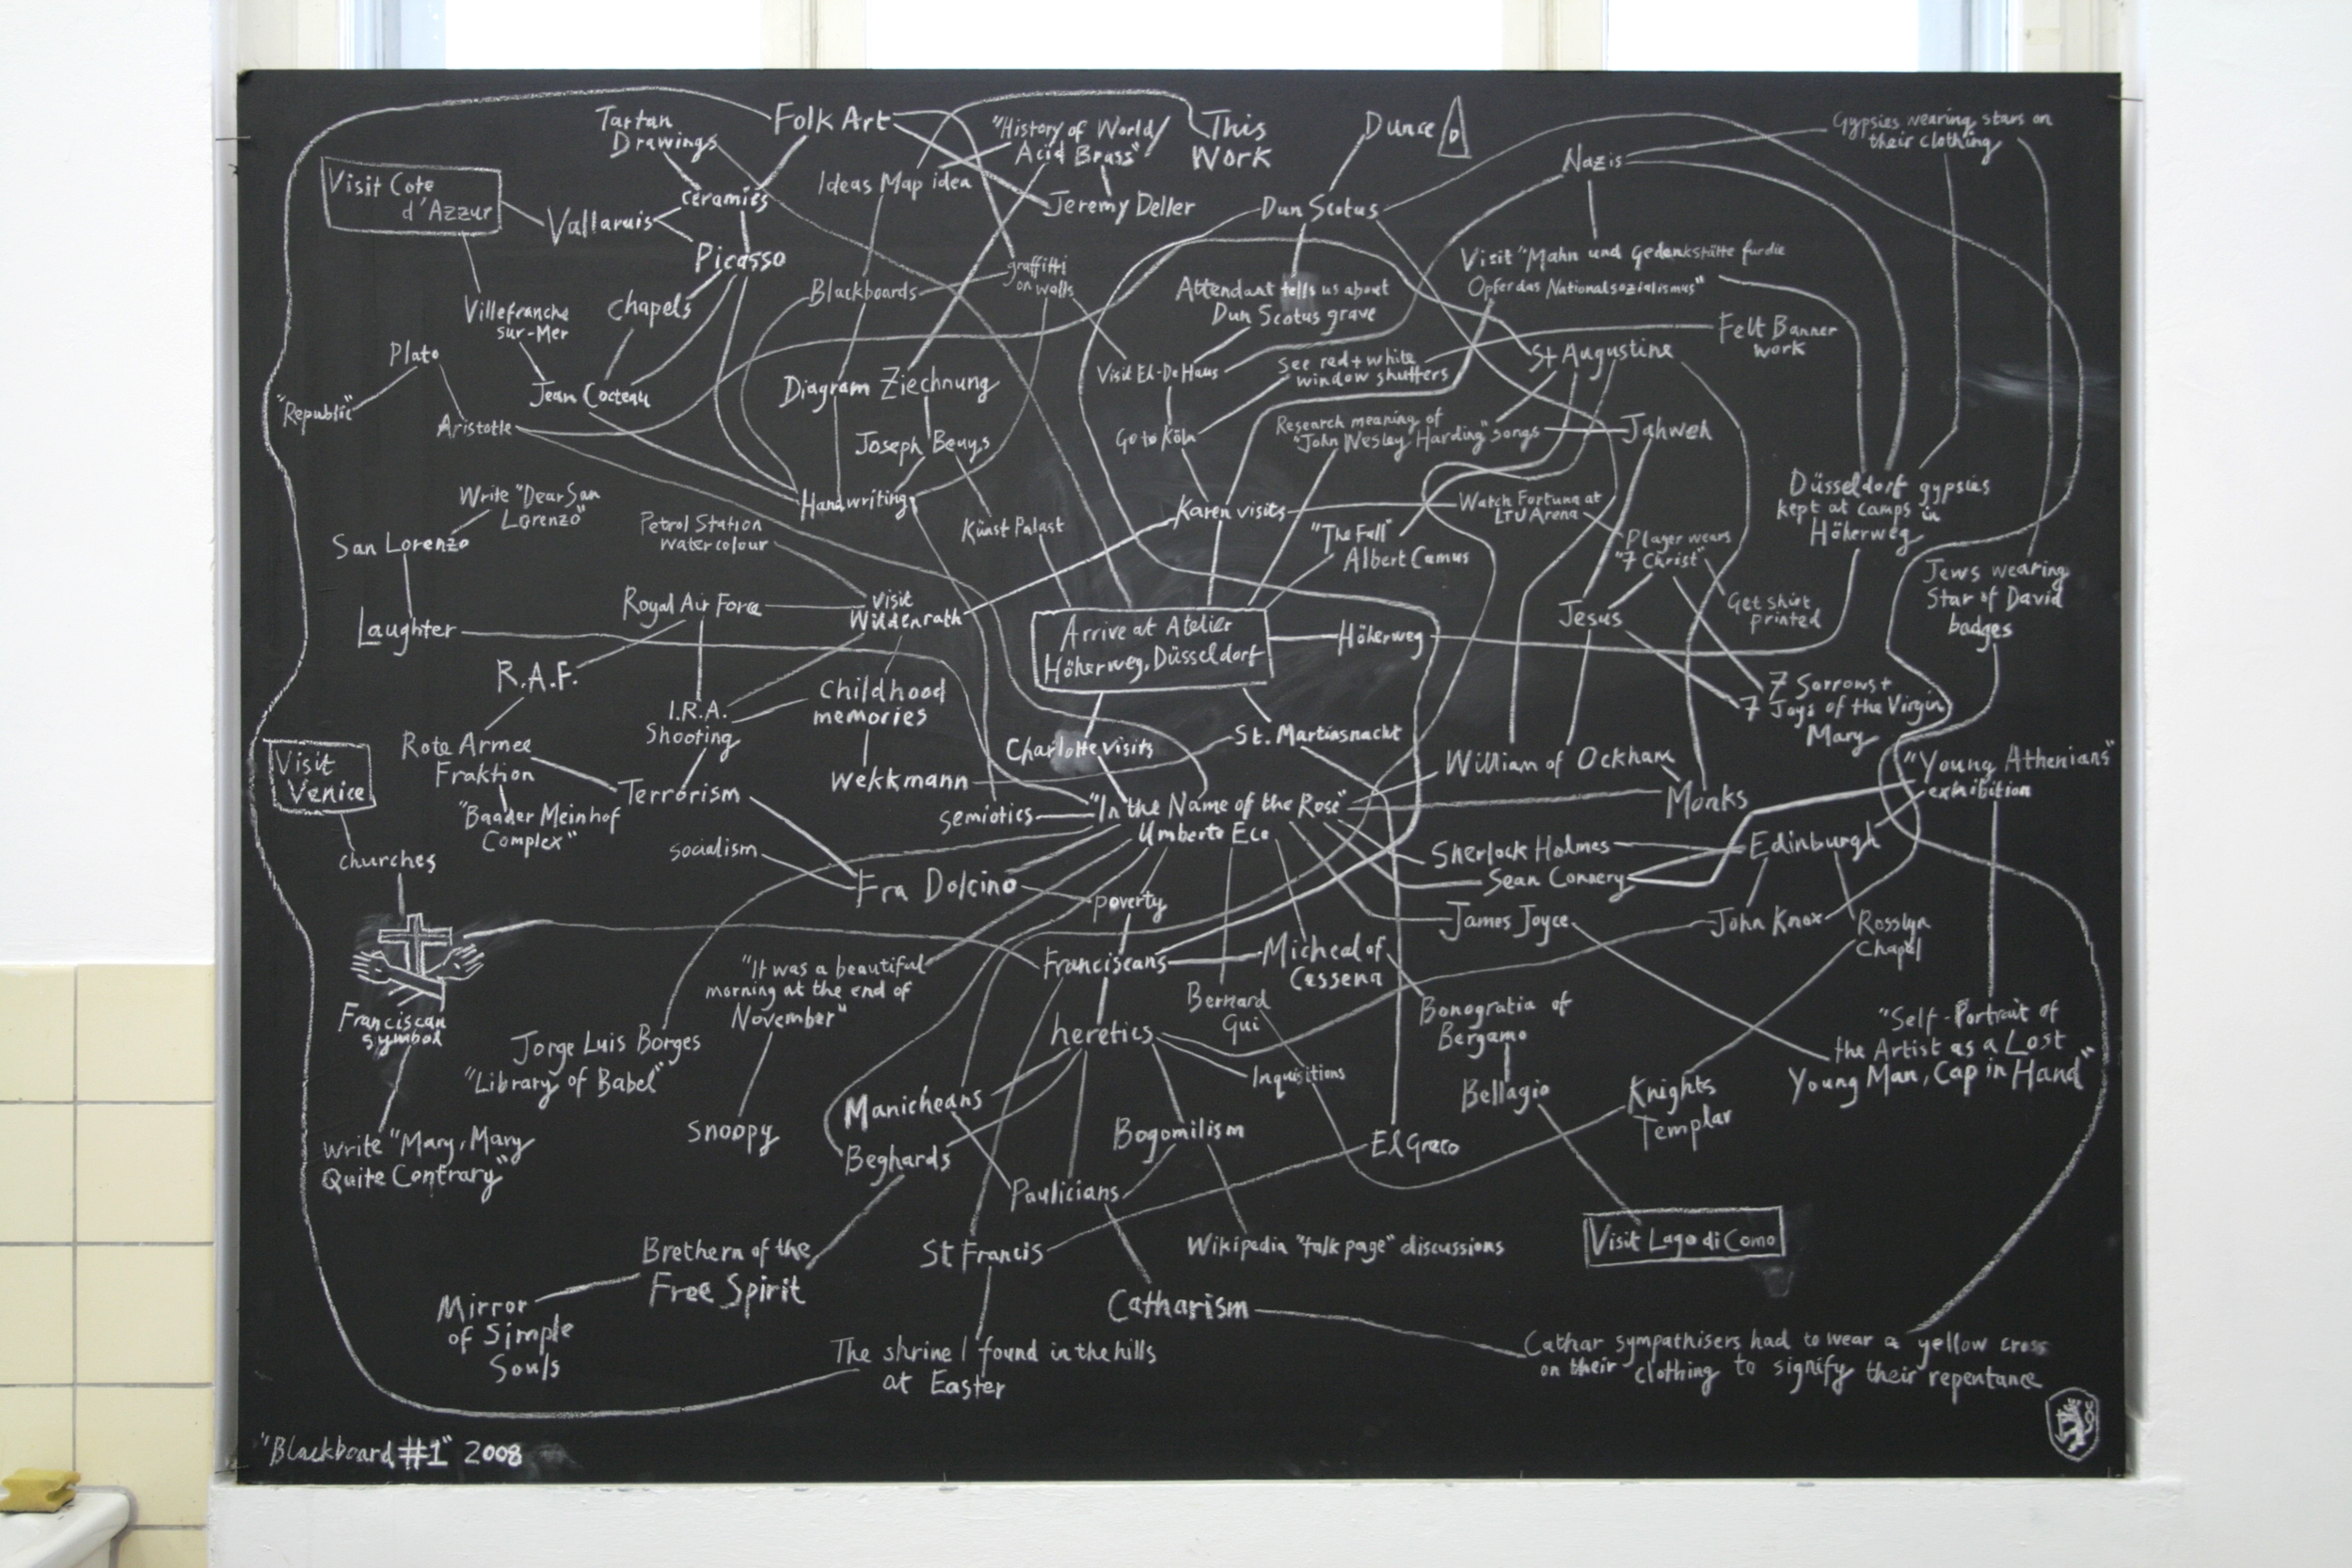 Tartan
Drawings
Folk Art
"History of World/
Acid Brass"
This
Work
Dunce
D
Gypsies wearing stars on
their clothing
Nazis
Visit Cote
d'Azzur
Ideas Map idea
ceramics
Vallaruis
Jeremy Deller
Dun Scotus
Picasso
Visit "Mahn und Gedenkstätte fur die
Opfer das Nationalsozialismus"
graffitti
on walls
Blackboards
Attendant tells us about
Dun Scotus grave
Villefranche
sur-Mer
Chapels
Felt Banner
work
Plato
St Augustine
Visit El-De Haus
See red + white
window shutters
"Republic"
Jean Cocteau
Diagram Ziechnung
Aristotle
Joseph Beuys
Go to Köln
Research meaning of
"John Wesley Harding" songs
Jahweh
Write "Dear San
Lorenzo"
Handwriting
Karen visits
Watch Fortuna at
LTU Arena
Düsseldorf gypsies
kept at camps in
Höherweg
San Lorenzo
Petrol Station
watercolour
Künst Palast
"The Fall"
Albert Camus
Player wears
"7 Christ"
Jews wearing
Star of David
badges
Royal Air Force
Visit
Wildenrath
Jesus
Get shirt
printed
Laughter
Arrive at Atelier
Höherweg, Düsseldorf
Höherweg
R.A.F.
Childhood
memories
I.R.A.
Shooting
7 Sorrows +
7 Joys of the Virgin
Mary
Rote Armee
Fraktion
Charlotte visits
St. Martinsnacht
William of Ockham
"Young Athenians"
exhibition
Visit
Venice
Wekkmann
Terrorism
"Baader Meinhof
Complex"
semiotics
"In the Name of the Rose"
Umberto Eco
Monks
socialism
churches
Sherlock Holmes
Edinburgh
Sean Connery
Fra Dolcino
poverty
James Joyce
John Knox
Rosslyn
Chapel
"It was a beautiful
morning at the end of
November"
Franciscans
Micheal of
Cessena
Bernard
Gui
Bonogratia of
Bergamo
Franciscan
symbol
heretics
"Self-Portrait of
the Artist as a Lost
Young Man, Cap in Hand"
Jorge Luis Borges
"Library of Babel"
Inquisitions
Bellagio
Knights
Templar
Manicheans
Snoopy
Bogomilism
El Greco
Write "Mary, Mary
Quite Contrary"
Beghards
Paulicians
Brethern of the
Free Spirit
St Francis
Wikipedia "talk page" discussions
Visit Lago di Como
Mirror
of Simple
Souls
Catharism
The shrine I found in the hills
at Easter
Cathar sympathisers had to wear a yellow cross
on their clothing to signify their repentance
"Blackboard #1" 2008